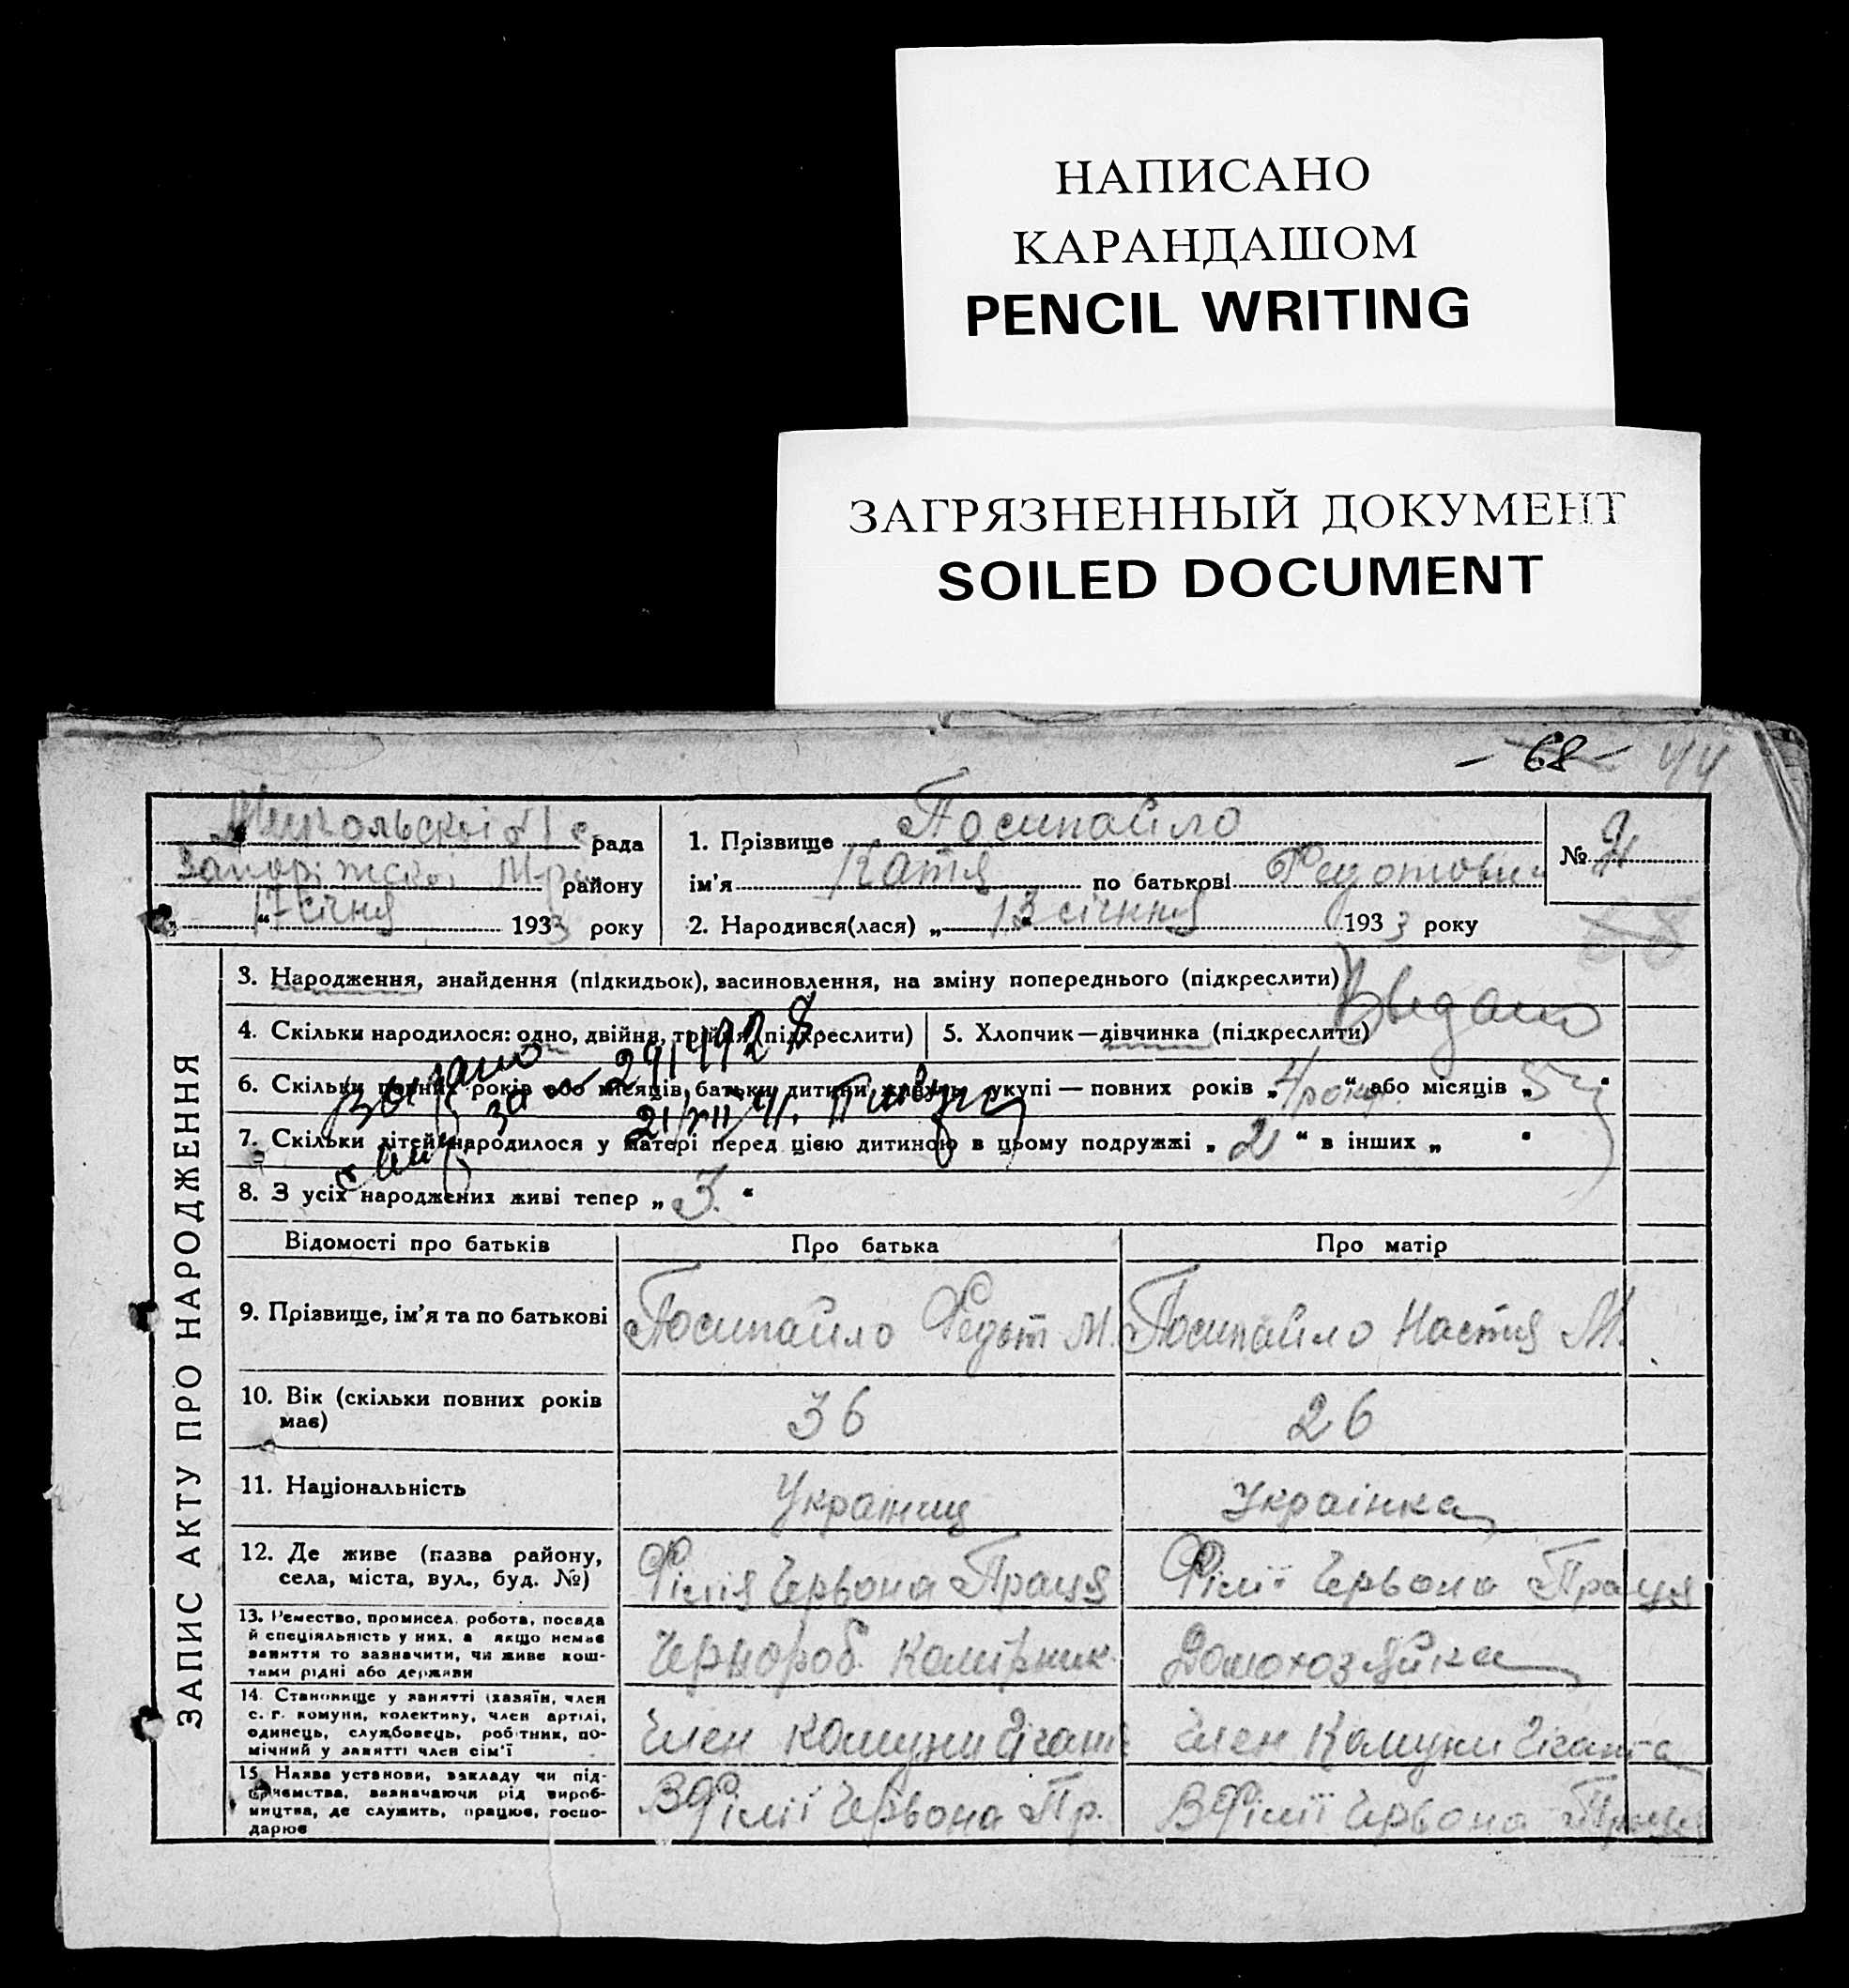 НАПИСАНО
КАРАНДАШОМ
PENCIL WRITING
ЗАГРЯЗНЕННЫЙ ДОКУМЕНТ
SOILED DOCUMENT
- 68 - 44
рада
Запоріжскоі М-ра району
"17 січня 1933 року
1. Прізвище Посипайло
ім'я Катя по батькові Федотовна
2. Народився(лася) „13 січня 1933 року
№
68
ЗАПИС АКТУ ПРО НАРОДЖЕННЯ
3. Народження, знайдення (підкидьок), васиновлення, на зміну попереднього (підкреслити)
4. Скільки народилося: одно, двійня, трійня (підкреслити)
5. Хлопчик—дівчинка (підкреслити)
6. Скільки повних років або місяців батьки дитини живуть укупі — повних років „4 роки“ або місяців „5“
7. Скільки дітей народилося у матері перед цією дитиною в цьому подружжі „2“ в інших „ “
8. З усіх народжених живі тепер „3.“
Відомості про батьків Про батька Про матір
9. Прізвище, ім'я та по батькові Посипайло Федот М. Посипайло Настя М.
10. Вік (скільки повних років має) 36 26
11. Національність Українец Украінка
12. Де живе (назва району, села, міста, вул., буд. №) Філія Червона Праця Філії Червона Праця
13. Ремество, промисел, робота, посада й спеціяльність у них, а якщо немає заняття то зазначити, чи живе коштами рідні або держави Чернороб. Комірник Домохозяйка
14. Становище у занятті (хазяїн, член с.-г. комуни, колективу, член артілі, одинець, службовець, робітник, помічний у занятті член сім'ї Член Комуни Гігант Член Комуни Гіганта
15. Назва установи, закладу чи підприємства, зазначаючи рід виробництва, де служить, працює, господарює В Філії Червона Пр. В Філії Червона Праця